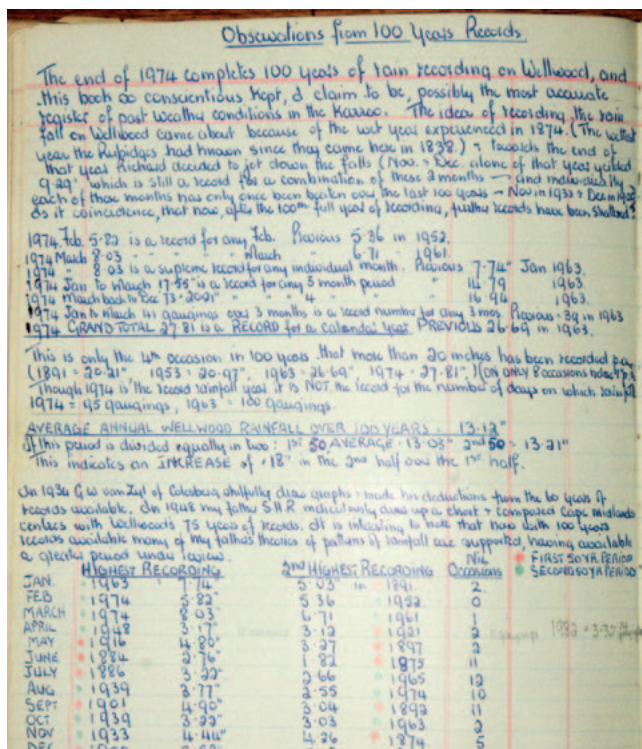 Observations from 100 Years Records
The end of 1974 completes 100 years of rain recording on Wellwood, and
this book so conscientious kept, I claim to be, possibly the most accurate
register of past weather conditions in the Karroo. The idea of recording the rain
fall on Wellwood came about because of the wet year experienced in 1874. (The wettest
year the Rubidges had known since they came here in 1838.) towards the end of
that year Richard decided to jot down the falls (Nov. + Dec. alone of that year yielded
9.29" which is still a record for a combination of these 2 months — and individually
each of those months has only once been beaten over the last 100 years - Nov in 1933 + Dec in
Is it coincidence, that now, after the 100th full year of recording, further records have been shattered?
1974. Feb. 5.82 is a record for any Feb. Previous 5.36 in 1952.
1974 March 8.03 " " " " March " 6.71 " 1961.
1974 " 8.03 is a supreme record for any individual month. Previous 7.74" Jan 1963.
1974 Jan to March 17.55 is a record for any 3 month period " 14.79 1963.
1974 March back to Dec 73 - 20.21" " " " 4 " " 16.94 1963.
1974 Jan to March 41 gaugings over 3 months is a record number for any 3 mos. Previous - 39 in 1963
1974 GRAND TOTAL 27.81 is a RECORD for a calendar year. PREVIOUS 26.69 in 1963.
This is only the 4th occasion in 100 years that more than 20 inches has been recorded p.a.
(1891 = 20.21" 1953 = 20.97" 1963 = 26.69" 1974 = 27.81") (ON ONLY 8 occasions below
Though 1974 is the record rainfall year it is NOT the record for the number of days on which rain fell
1974 = 95 gaugings, 1963 = 100 gaugings.
AVERAGE ANNUAL WELLWOOD RAINFALL OVER 100 YEARS = 13.12"
If this period is divided equally in two: 1st 50 AVERAGE - 13.03" 2nd 50 = 13.21"
This indicates an INCREASE of .18" in the 2nd half over the 1st half.
In 1934 G W van Zyl of Colesberg skilfully drew graphs + made his deductions from the 60 years of
records available. In 1948 my father S.H.R. meticulously drew up a chart + compared Cape midlands
centres with Wellwood's 75 years of records. It is interesting to note that now with 100 years
records available many of my father's theories of patterns of rainfall are supported, having available
a greater period under review.
HIGHEST RECORDING 2nd HIGHEST RECORDING Nil Occasions FIRST 50 YR PERIOD
SECOND 50 YR PERIOD
JAN. 1963 7.74" 5.03" in 1891. 2
FEB 1974 5.82" 5.36 1952 0
MARCH 1974 8.03" 6.71 1961 1
APRIL 1948 3.17" 3.12 1921 2
MAY 1916 4.80" 3.27 1897 2
JUNE 1884 2.76" 1.82 1875 11
JULY 1886 3.22" 2.66 1965 12
AUG 1939 3.77" 2.55 1974 10
SEPT 1901 4.90" 3.04 1892 11
OCT 1939 3.22" 3.03 1963 2
NOV 1933 4.44" 4.26 1874 5
DEC